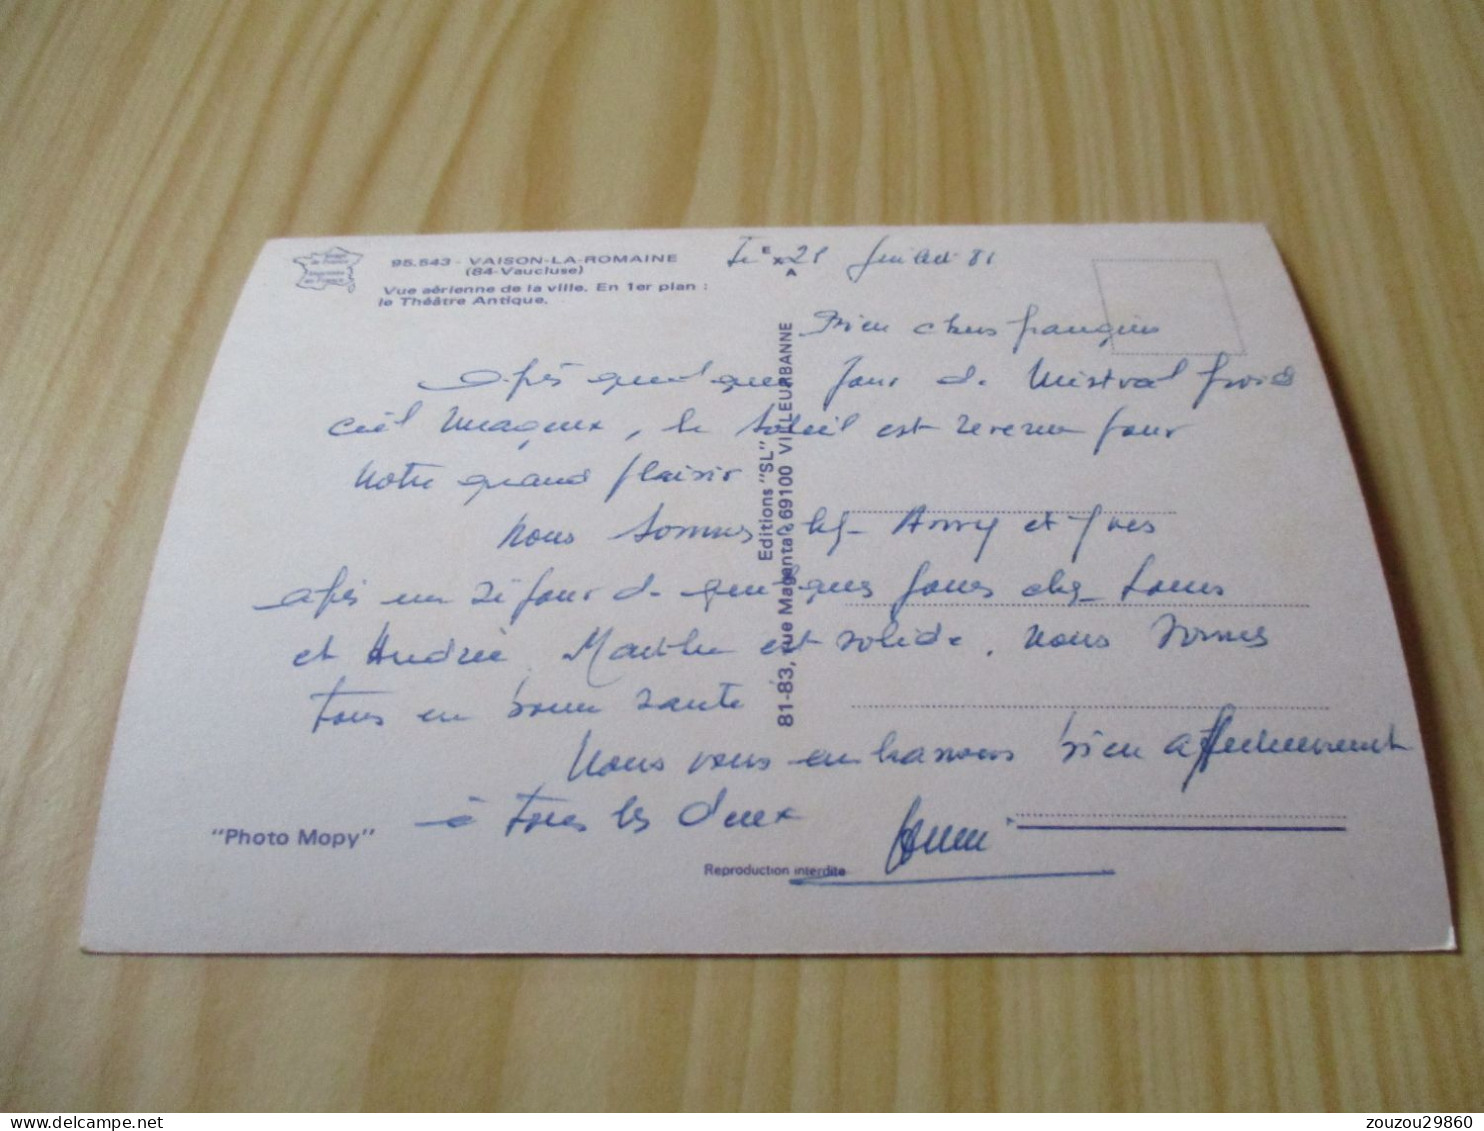 Image de France
95.543 - VAISON-LA-ROMAINE
(84-Vaucluse)
Vue aérienne de la ville. En 1er plan :
le Théâtre Antique.
21 Juillet 81
Bien chers
Après quelques jour de Mistral froid
ciel nuageux, le soleil est revenu pour
notre grand plaisir
Nous sommes chez et Yves
après un séjour de quelques jours chez Louis
et Andrée. Marthe est solide. Nous sommes
tous en bonne santé
Nous vous embrassons bien affectueusement
à tous les deux
"Photo Mopy"
Reproduction interdite
Editions "SL"
81-83, rue Magenta - 69100 VILLEURBANNE
E
X
A
zouzou29860
delcampe.net